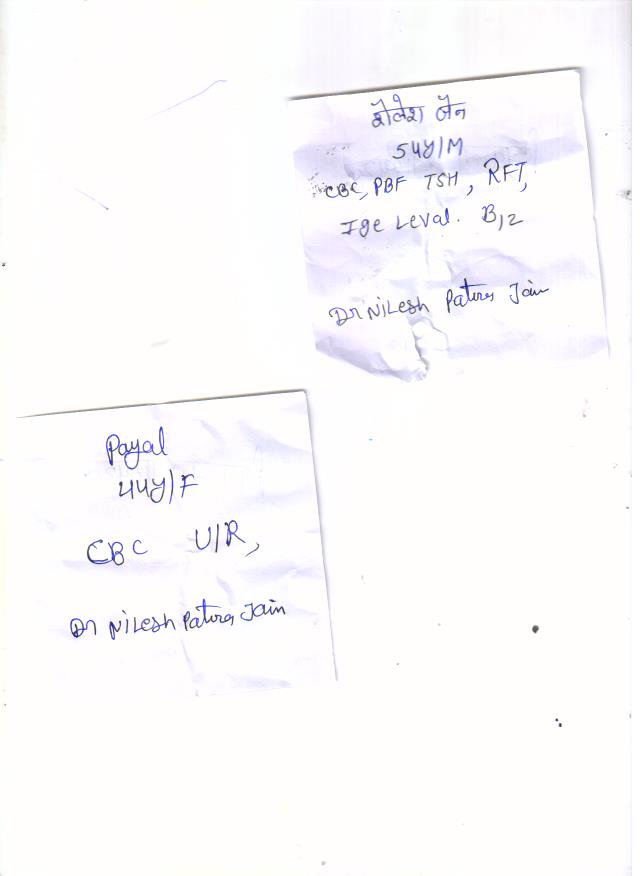 शैलेश जैन
54y/M
CBC, PBF TSH, RFT,
Ige Leval. B12
Dr NiLesh Patira Jain
Payal
44y/F
CBC U/R,
Dr NiLesh Patira Jain